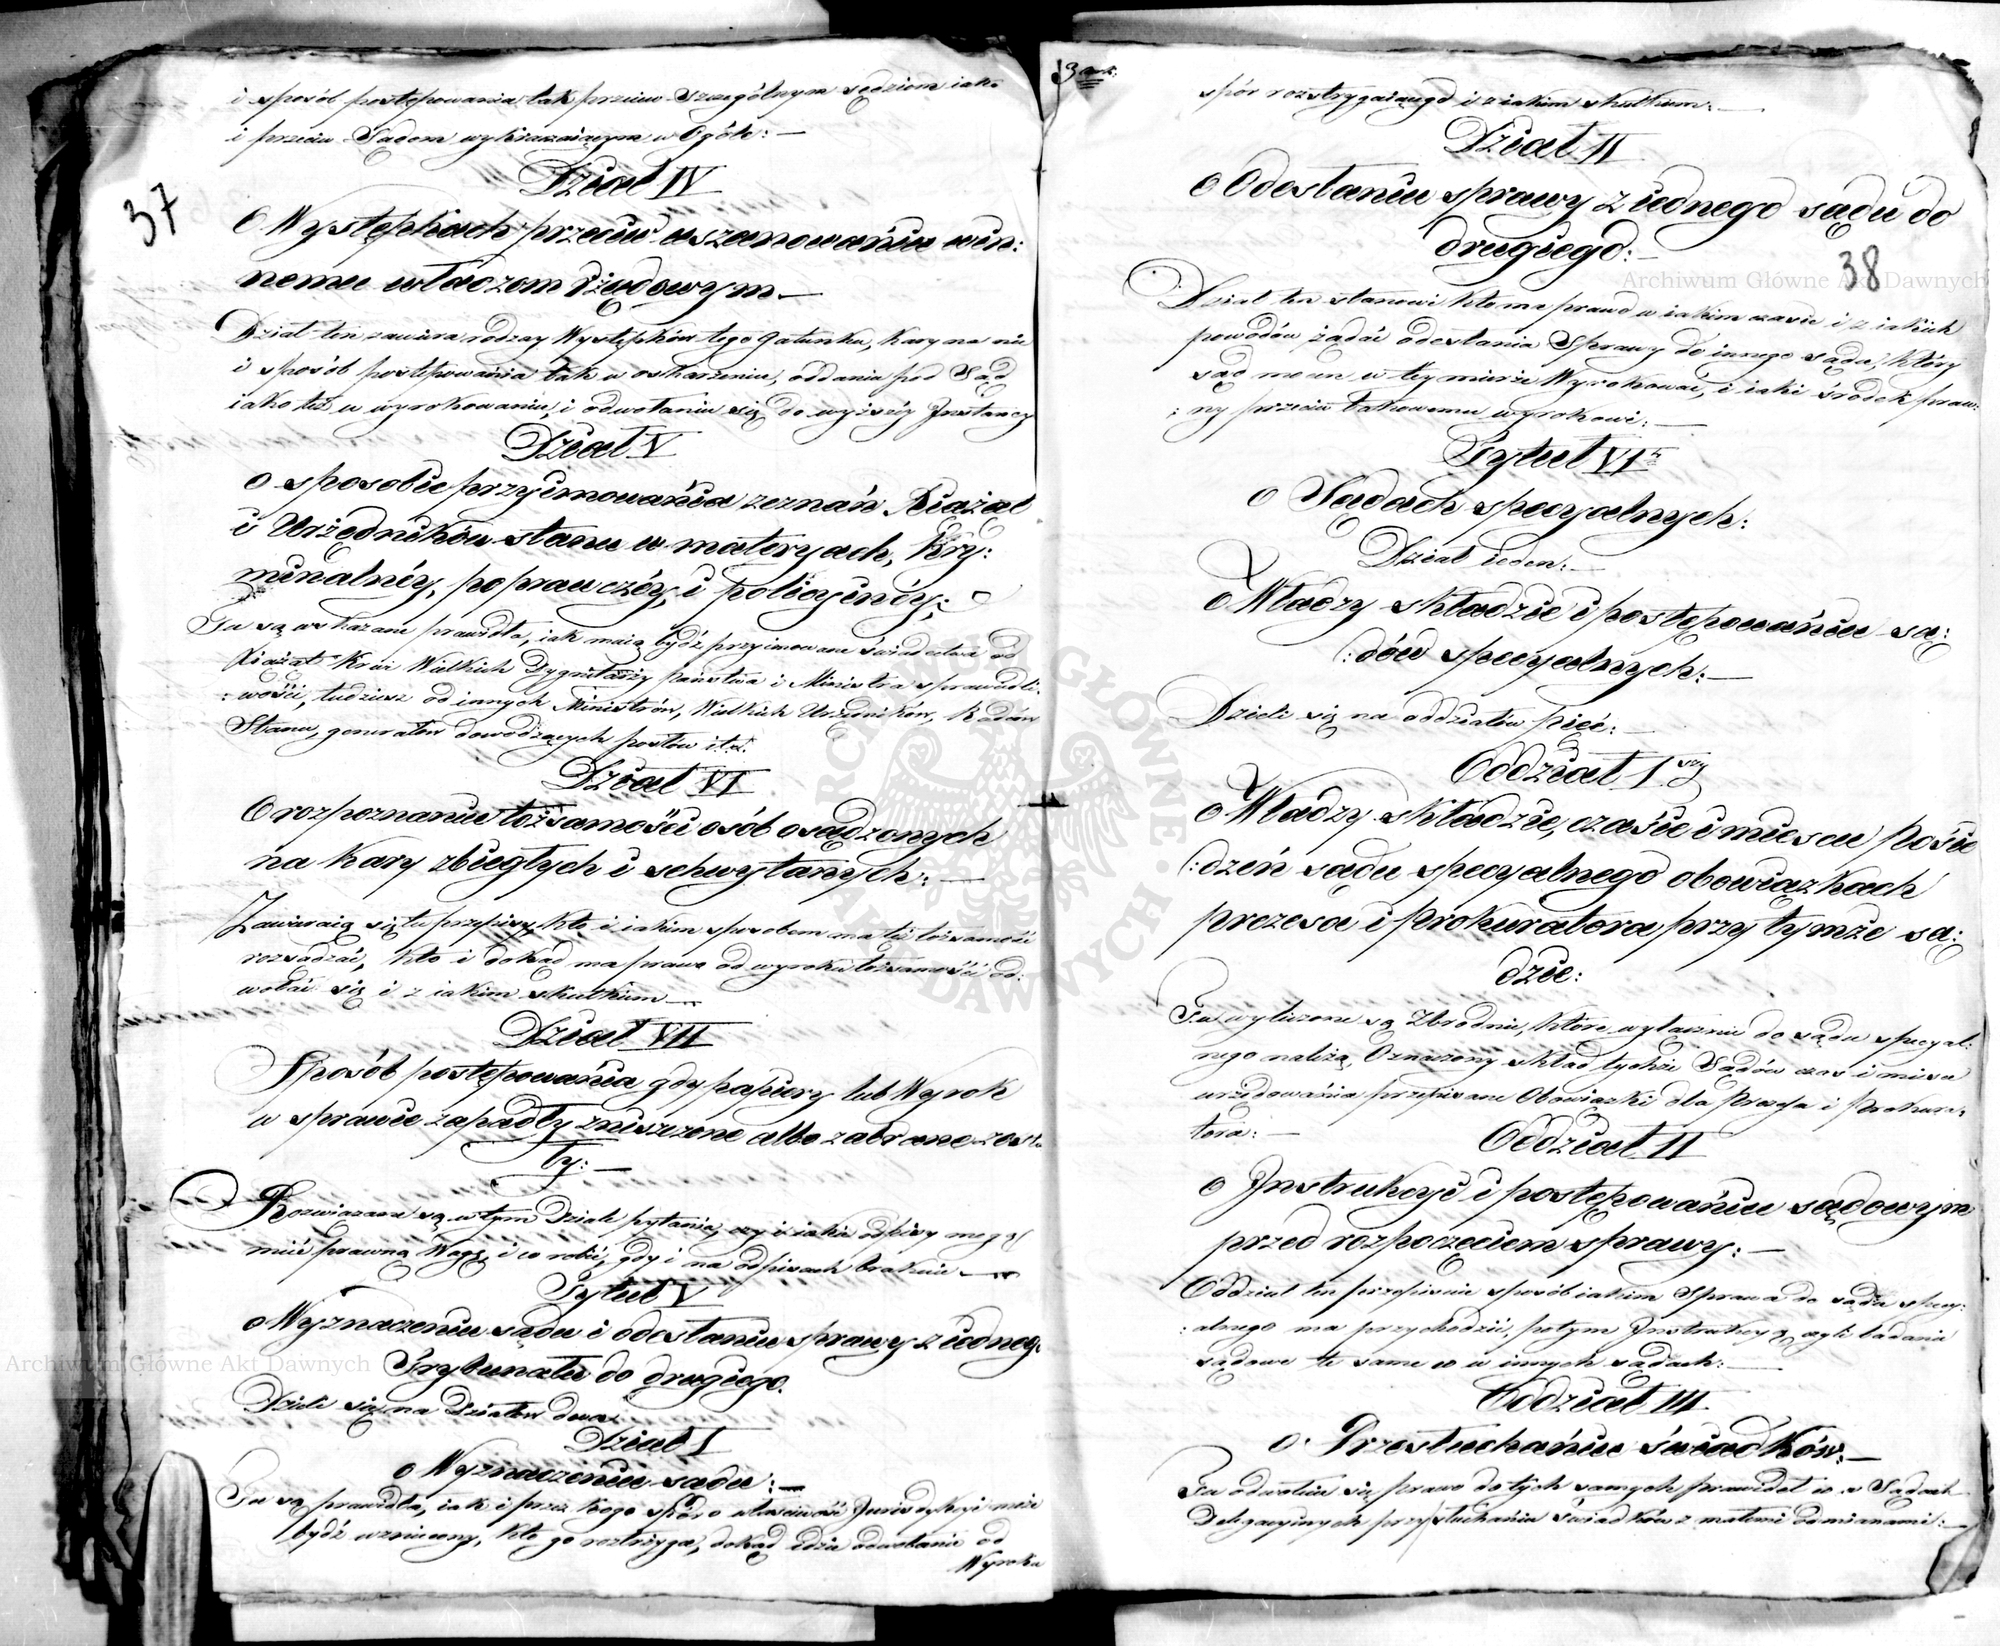 i sposób postępowania tak przeciw Szczególnym sędziom iako
i przeciw Sądom wykraczaiącym w Ogóle: —
Dział IV
O Występkach przeciw uszanowaniu win:
nemu władzom Rządowym. —
Dział ten zawiera rodzay Występków tego gatunku, kary na nie
i sposób postępowania tak w oskarzeniu, oddaniu pod Sąd
iako też w wyrokowaniu, i odwołaniu się do wyższéy Instancyi
Dział V
O sposobie przyimowania zeznań Xiążąt
i Urzędników stanu w materyach, kry:
minalnéy, poprawczéy, i policyinéy;
Tu są wskazane prawidła, iak maią bydź przyimowane świadectwa od
Xiążąt Krwi Wielkich Dygnitarzy państwa i Ministra sprawiedli:
:wości, tudzież od innych Ministrów, Wielkich Urzędników, Radców
Stanu, generałów dowodzących posłów i t.d.
Dział VI
O rozpoznaniu tożsamości osób osądzonych
na kary zbiegłych i schwytanych: —
Zawieraią się tu przepisy, kto i iakim sposobem ma téż tożsamość
rozsądzać, kto i dokąd ma prawo od wyroku tożsamości od:
wołać się i z iakim skutkiem —
Dział VII
Sposób postępowania gdy papiery lub Wyrok
w sprawie zapadły zniszczone albo zabrane zosta
ły: —
Rozwiązane są w tym Dziale pytania, czy i iakie odpisy mogą
mieć prawną Wagę, i co robić, gdy i na odpisach braknie —
Tytuł V
O Wyznaczeniu sądu i odesłaniu sprawy z iedneg:
Trybunału do drugiego.
Dzieli się na Działów dwa
Dział I
O Wyznaczeniu sądu: —
Tu są prawidła, iak i przez kogo spór o właściwość Jurisdykcyi może
bydź wzniecony, kto go roztrzyga, dokąd idzie odwołanie od
Wyroku
37
3 ark:
spór rozstrzygaiącego i z iakim skutkiem: —
Dział II
O Odesłaniu sprawy z iednego sądu do
drugiego: —
38
Dział ten stanowi kto ma prawo w iakim czasie i z iakich
powodów żądać odesłania Sprawy do innego sądu, który
sąd mocen w tey mierze Wyrokować, i iaki środek praw:
:ny przeciw takowemu wyrokowi: —
Tytuł VI
O Sądach specyalnych:
Dział ieden: —
O Władzy składzie i postępowaniu są:
:dów specyalnych: —
Dzieli się na oddziałów pięć: —
Oddział 1szy
O Władzy składzie, czasie i miescu posie
:dzeń sądu specyalnego obowiązkach
prezesa i prokuratora przy tymże są:
dzie:
Tu wyliczone są Zbrodnie, które wyłącznie do sądu specyal:
nego należą, Oznaczony skład tychże Sądów czas i miesce
urzędowania przepisane Obowiązki dla Prezesa i Prokura:
tora: —
Oddział II
O Instrukcyi i postępowaniu sądowym
przed rozpoczęciem sprawy: —
Oddział ten przepisuie sposób iakim Sprawa do sądu specy:
:alnego ma przychodzić, potym Instrukcyą czyli badania
sądowe te same co w innych sądach: —
Oddział III
O Przesłuchaniu świadków: —
Tu odwołuie się prawo do tych samych prawideł co w Sądach
Delegacyinych przy słuchaniu świadków z małemi odmianami: —
Archiwum Główne Akt Dawnych
Archiwum Główne Akt Dawnych
ARCHIWUM GŁÓWNE AKT DAWNYCH